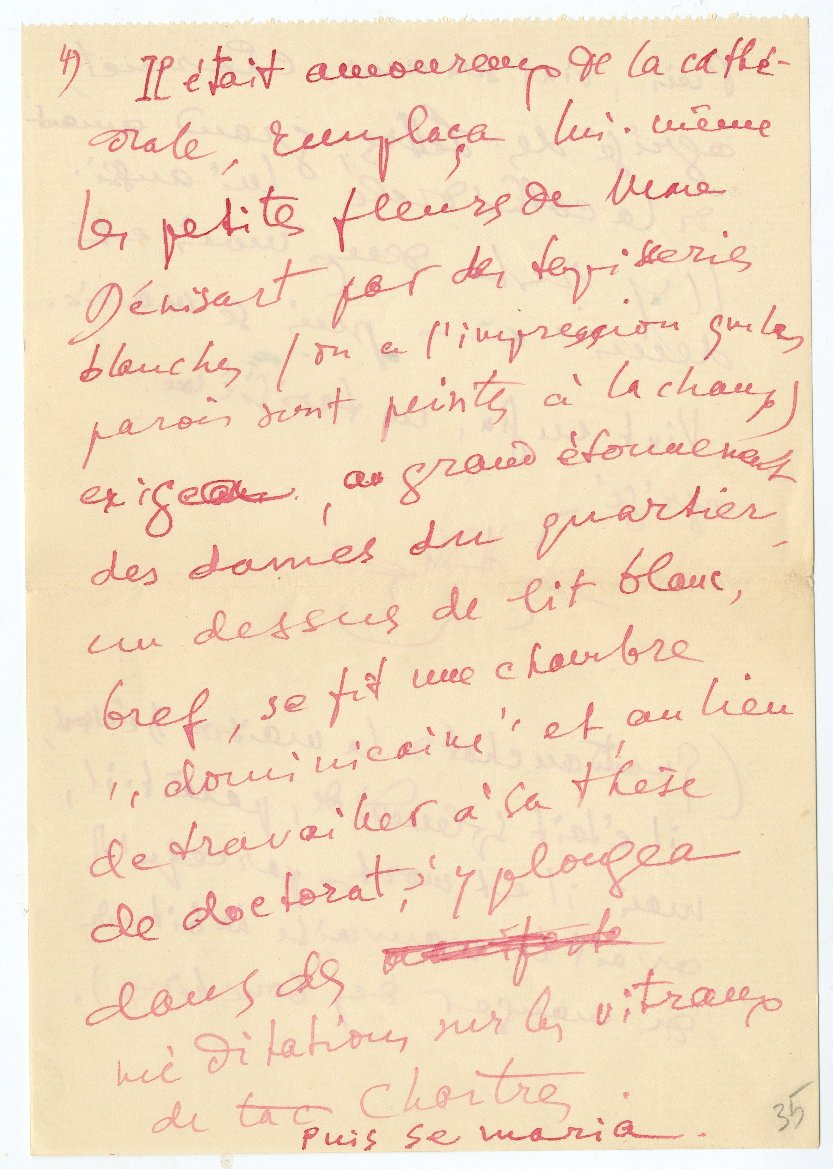 4) Il était amoureux de la cathé-
drale, remplaça lui-même
les petites fleurs de Mme
Dénisart par des tapisseries
blanches (on a l'impression que les
parois sont peintes à la chaux)
exigea, au grand étonnement
des dames du quartier,
un dessus de lit blanc,
bref, se fit une chambre
"dominicaine" et, au lieu
de travailler à sa thèse
de doctorat, s'y plongea
dans des manifest
méditations sur les vitraux
de lac Chartres.
puis se maria.
35